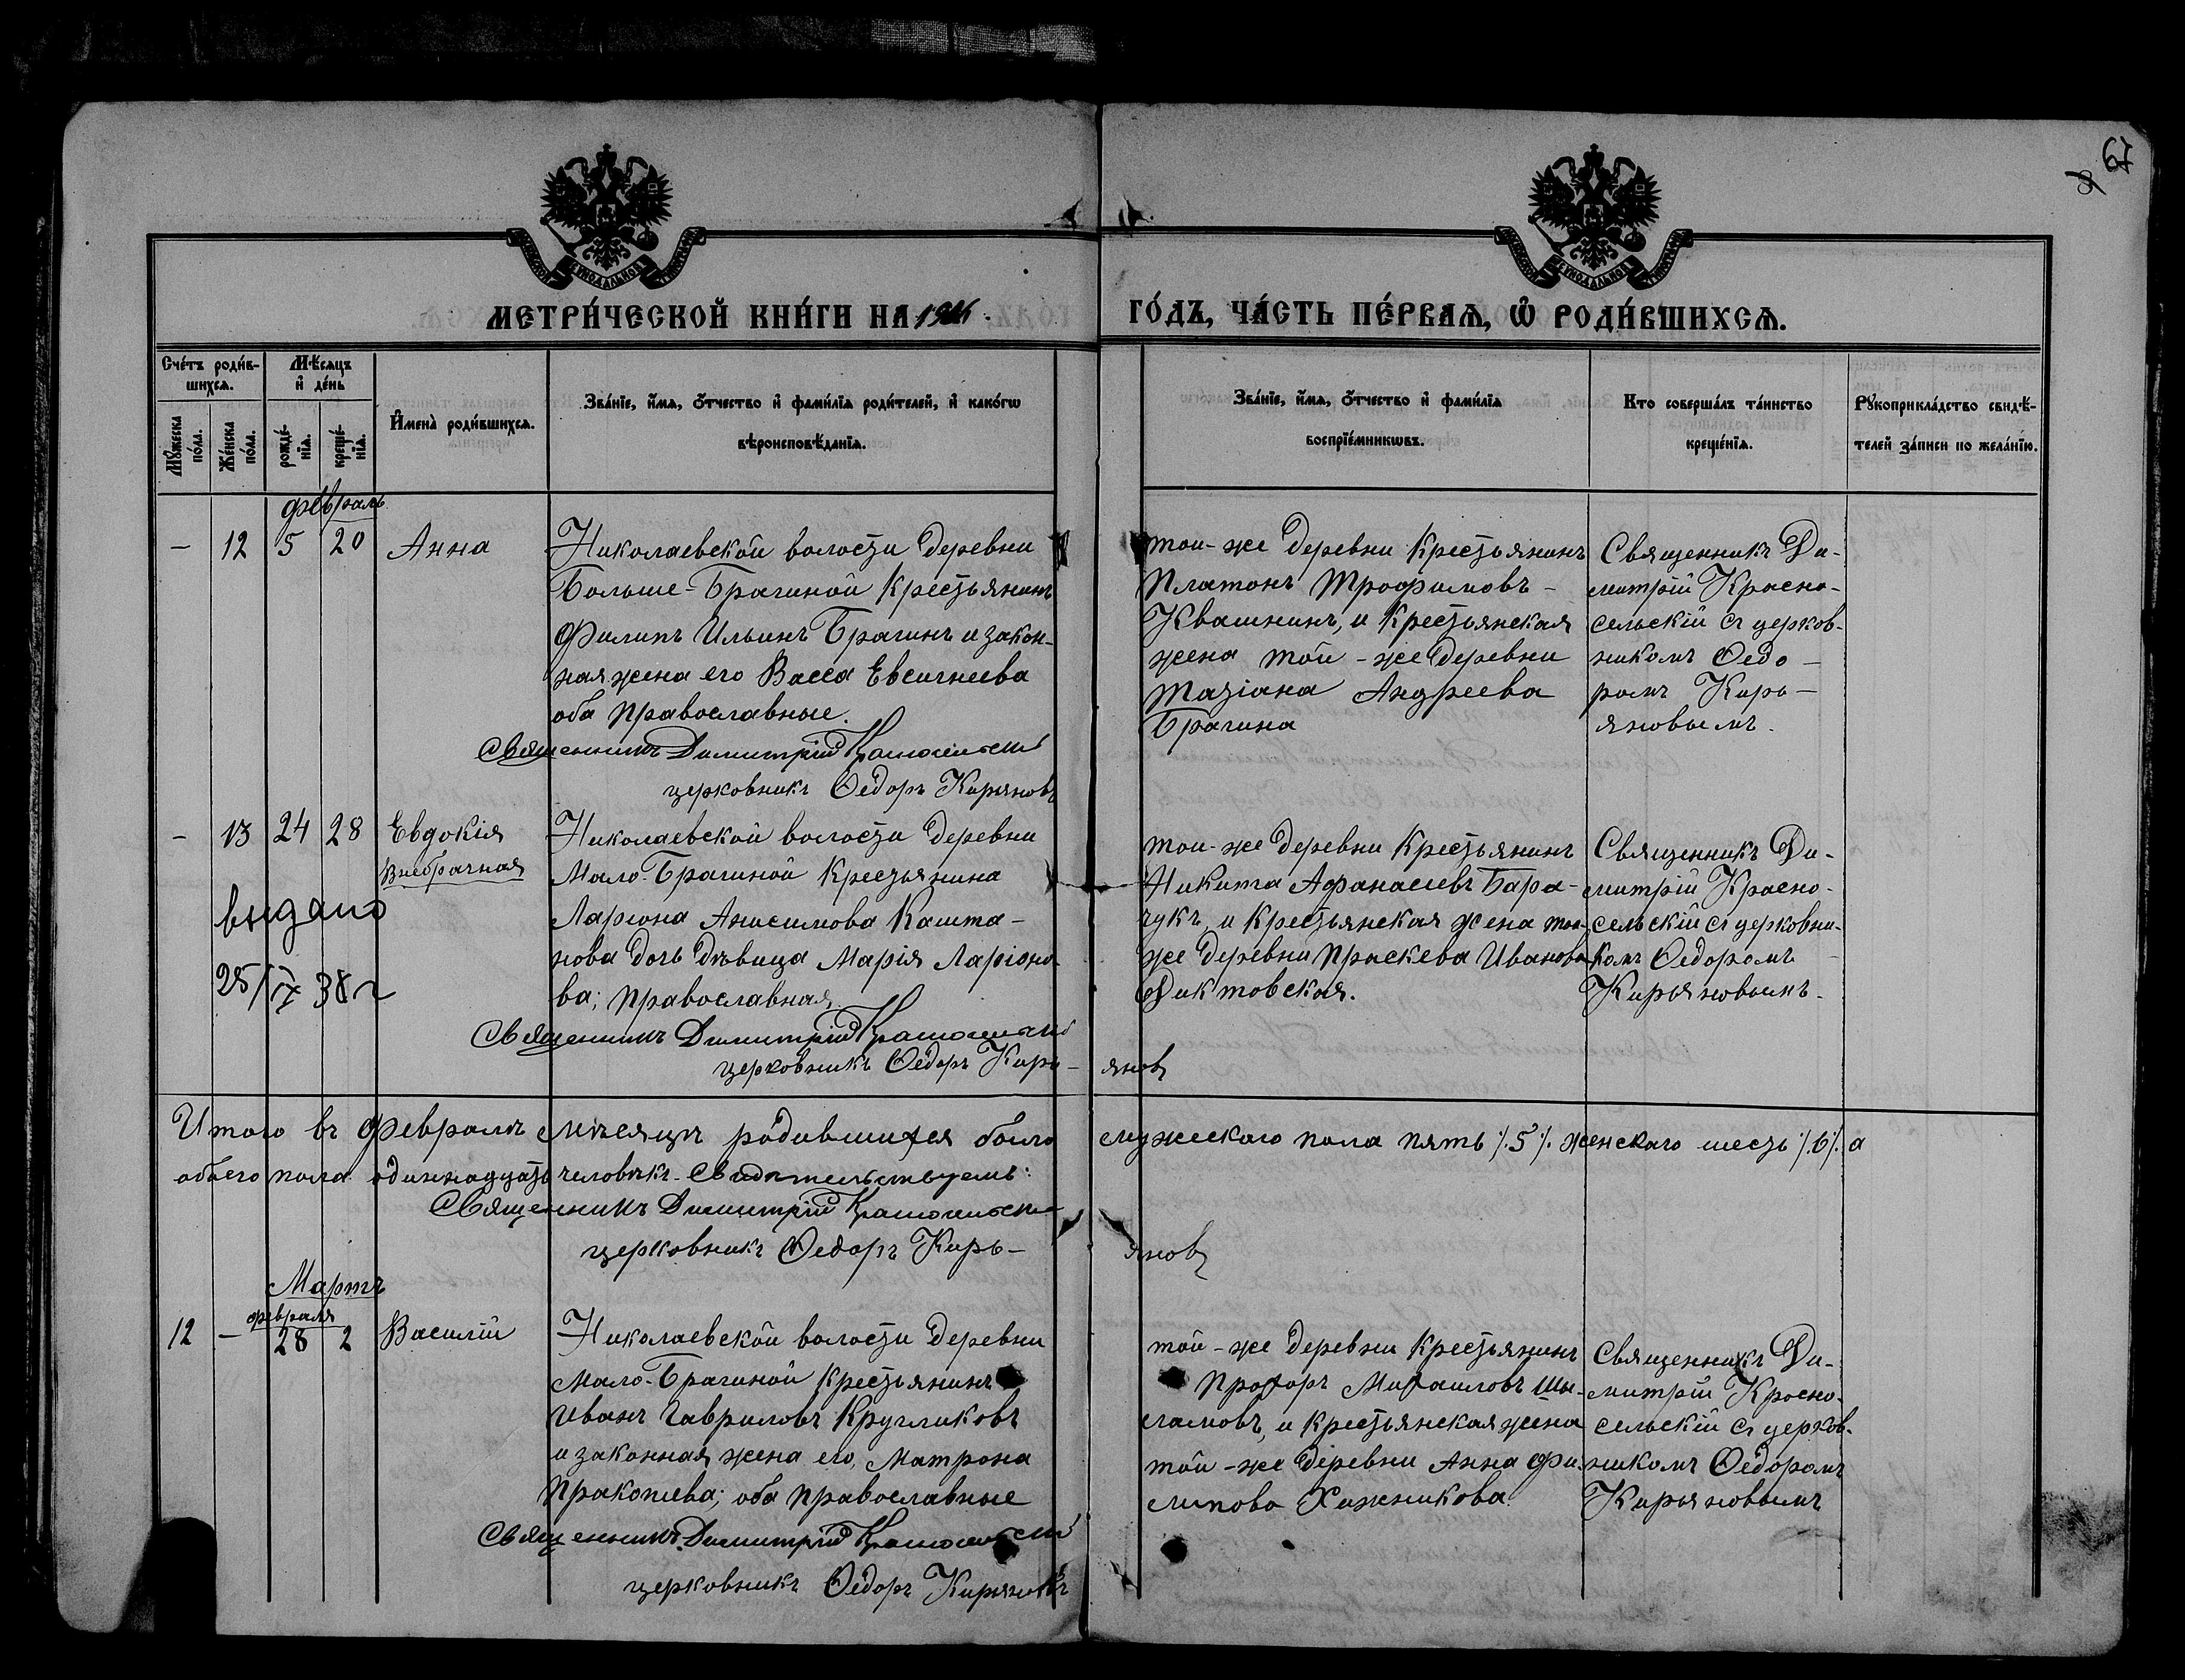 67
МЕТРИ́ЧЕСКОЙ КНИ́ГИ НА
ГО́ДЪ, ЧА́СТЬ ПЕ́РВАѦ, Ѡ҆ РОДИ́ВШИХСѦ.
Сче́тъ роди́в-
шихсѧ.
Мѣ́сѧцъ
и҆ де́нь
Мꙋ́жеска
по́ла.
Же́нска
по́ла.
рожде́-
нїѧ.
креще́-
нїѧ.
И҆мена̀ роди́вшихсѧ.
Зва́нїе, и҆́мѧ, о҆́тчество и҆ фами́лїѧ роди́телей, и҆ како́гѡ
вѣроисповѣ́данїѧ.
Зва́нїе, и҆́мѧ, о҆́тчество и҆ фами́лїѧ
воспрїе́мникѡвъ.
Кто соверша́лъ та́инство
креще́нїѧ.
Рꙋкоприкла́дство свидѣ́-
телей за́писи по жела́нїю.
февраль
— 12 5 20 Анна
Николаевской волости деревни
Больше-Брагиной крестьянинъ
Филипъ Ильинъ Брагинъ и закон-
ная жена его Васса Евсигнеева
оба православные.
Священникъ Димитрій Красносельскій
церковникъ Ѳедоръ Кирьяновъ
той-же деревни крестьянинъ
Платонъ Трофимовъ –
Квашнинъ, и крестьянская
жена той-же деревни
Татіана Андреева
Брагина
Священникъ Ди-
митрій Красно-
сельскій съ церков-
никомъ Ѳедо –
ромъ Кирь –
яновымъ.
– 13 24 28 Евдокія
Внебрачная
выдано
25/IX 38 г
Николаевской волости деревни
Мало-Брагиной крестьянина
Ларіона Анисимова Кашта-
нова дочь дѣвица Марія Ларіоно-
ва; православная.
Священникъ Димитрій Красносельскій
церковникъ Ѳедоръ Кирь-
яновъ
той-же деревни крестьянинъ
Никита Афанасіевъ Бара-
чукъ, и крестьянская жена той-
же деревни Праскева Иванова
Диктовская.
Священникъ Ди-
митрій Красно-
сельскій съ церковни-
комъ Ѳедоромъ
Кирьяновымъ.
Итого въ февралѣ мѣсяцѣ родившихся было мужескаго пола пять /.5/. женскаго шесть /.6/. а
обоего пола одиннадцать человѣкъ. Свидѣтельствуемъ:
Священникъ Димитрій Красносельскій
церковникъ Ѳедоръ Кирь-
яновъ
Мартъ
февраля
12 – 28 2 Василій
Николаевской волости деревни
Мало-Брагиной крестьянинъ
Иванъ Гавриловъ Кругликовъ
и законная жена его, Матрона
Пракопиева; оба православные
Священникъ Димитрій Красносельскій
церковникъ Ѳедоръ Кирьяновъ
той-же деревни крестьянинъ
Прохоръ Михаиловъ Шы-
ламовъ, и крестьянская жена
той-же деревни Анна Фи-
липова Хижникова.
Священникъ Ди-
митрій Красно-
сельскій съ церков-
никомъ Ѳедоромъ
Кирьяновымъ